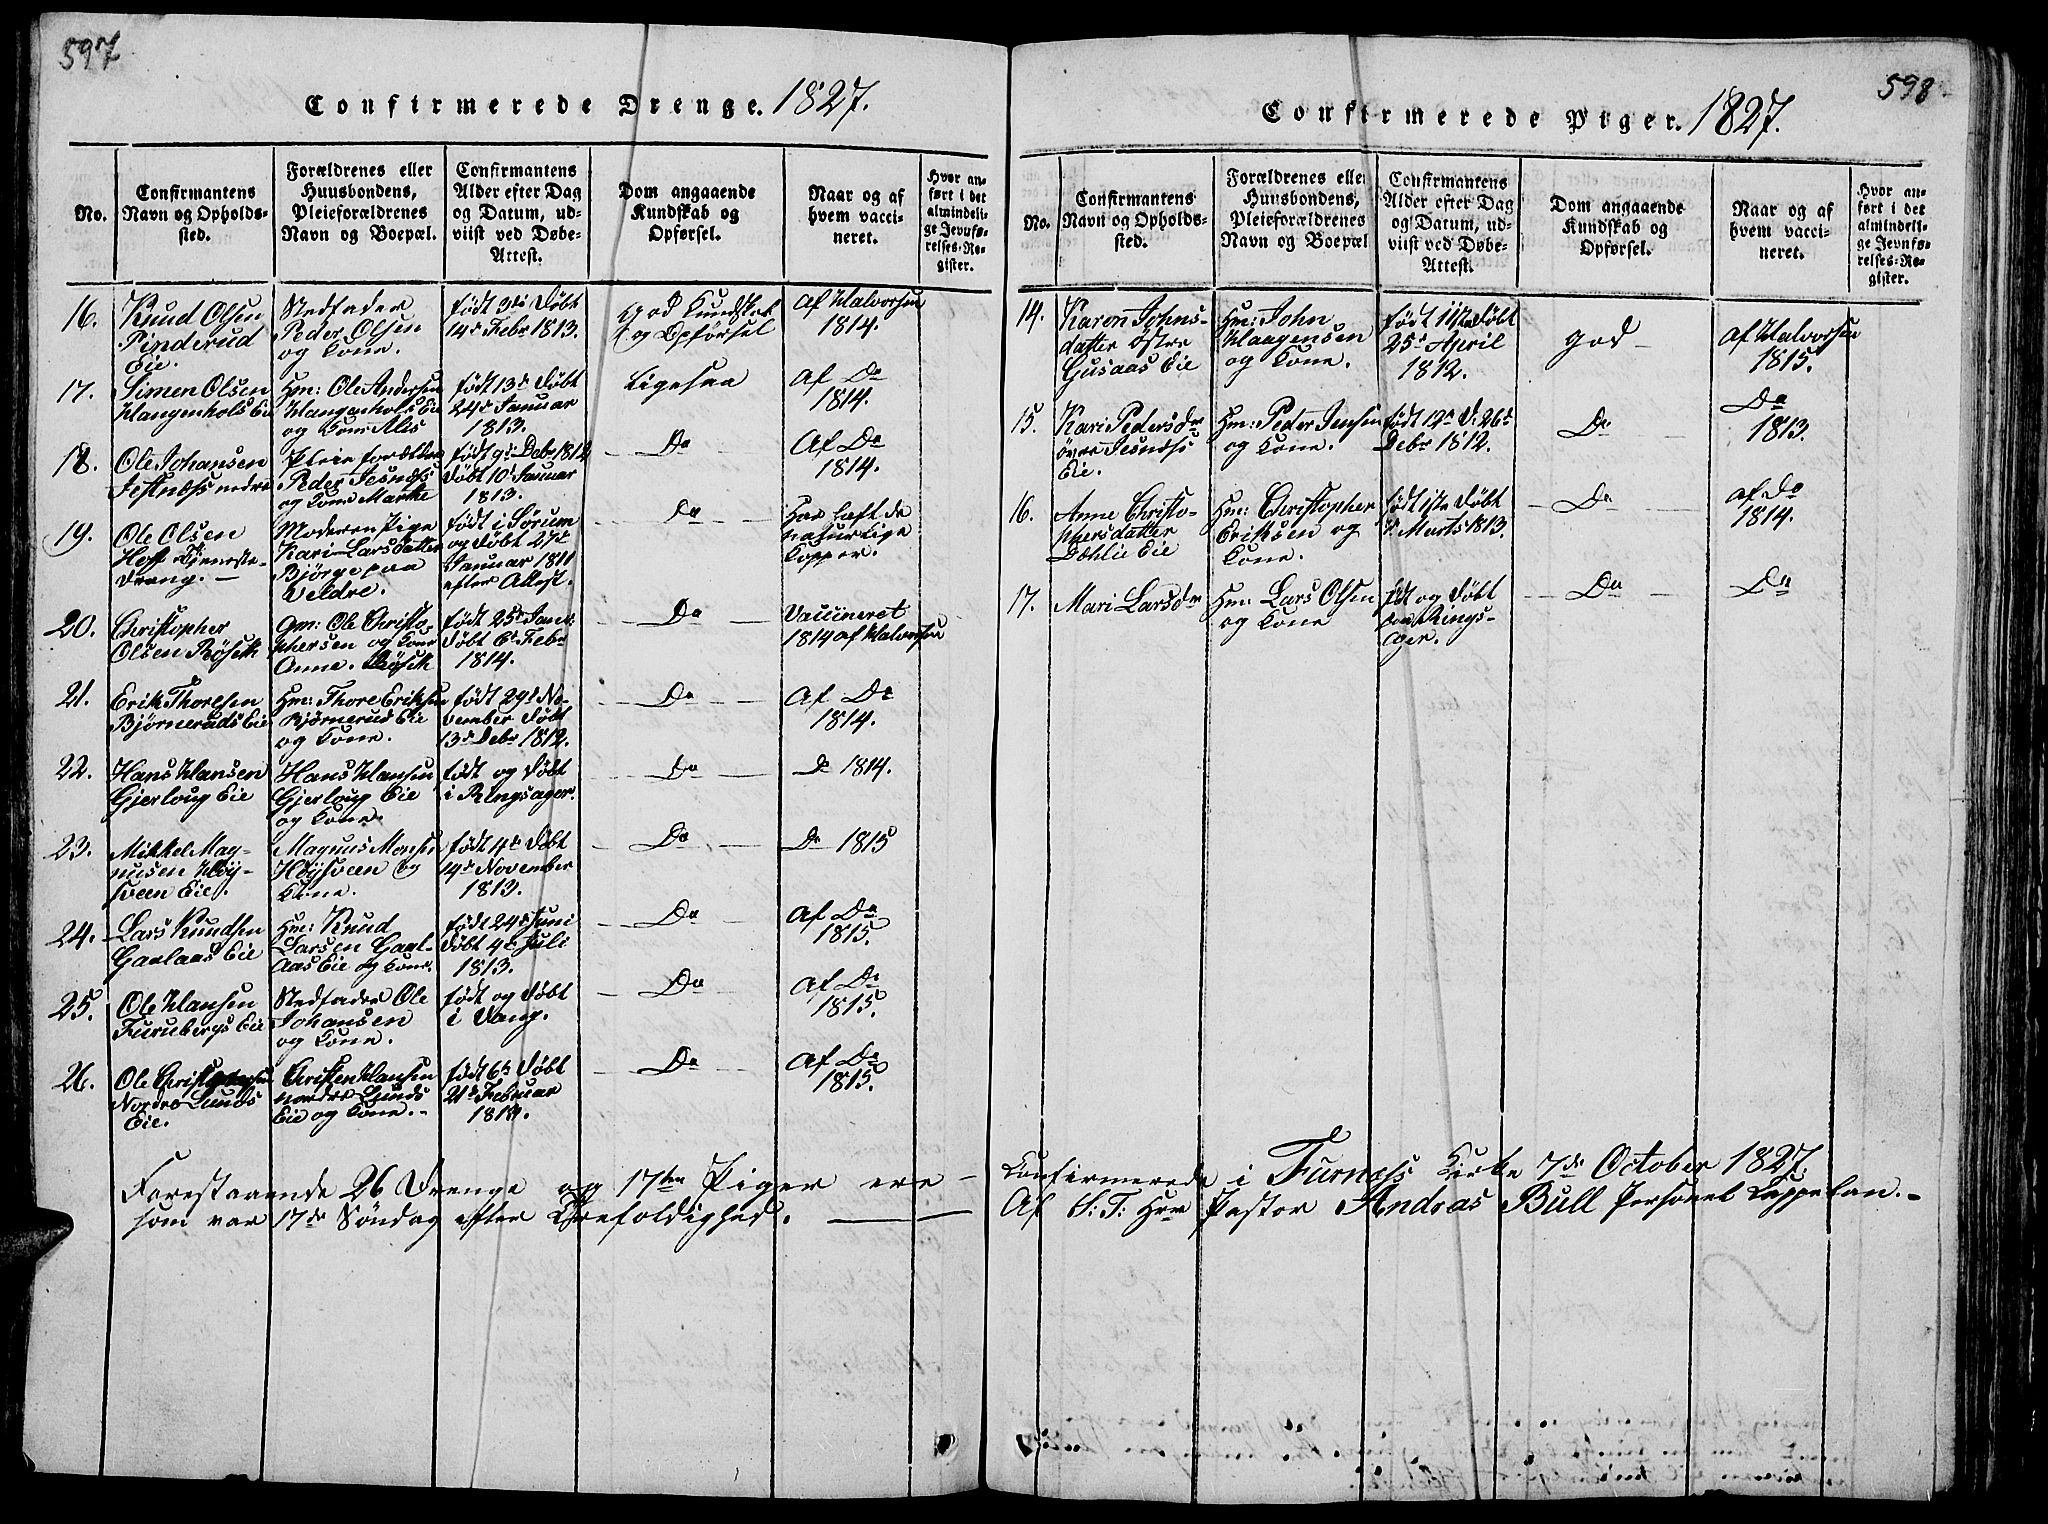 597
Confirmerede Drenge. 1827.
No.
Confirmantens
Navn og Opholds-
sted.
Forældrenes eller
Huusbondens,
Pleieforældrenes
Navn og Boepæl.
Confirmantens
Alder efter Dag
og Datum, ud-
viist ved Døbe-
Attest.
Dom angaaende
Kundskab og
Opførsel.
Naar og af
hvem vacci-
neret.
Hvor an-
ført i det
almindeli-
ge Jevnfø-
relses-Re-
gister.
16.
Knud Olsen
Pinderud
Eie.
Stedfader
Peder Olsen
og Kone.
født 3de Døbt
14de Febr 1813.
god Kundskab
og Opførsel
Af Halvorsen
1814.
17.
Simen Olsen
Hangenhols Eie
Hm: Ole Andersen
Hangenhols Eie
og Kone Ales
født 13de Døbt
24de Januar
1813.
Ligesaa
Af Do
1814.
18.
Ole Johansen
Jestnæss nedre
Pleieforældre
Peder Jesnæss
og Kone Marthe
født 9de Debr 1812
Døbt 10de Januar
1813.
Do
Af Do
1814.
19.
Ole Olsen
Hoff Tjeneste-
dreng.
Moderen Pige
Kari Larsdatter
Bjørge paa
Veldre.
født i Sørum
og Døbt 27de
Januar 1811
efter Attest.
Do
Har haft de
naturlige
Kopper.
20.
Christopher
Olsen Røseth
gm: Ole Christo-
phersen og Kone
Anne. Røseth
født 25de Janr:
Døbt 6te Febr
1814.
Do
Vaccineret
1814 af Halvorsen
21.
Erik Thorelsen
Bjørneruds Eie
Hm: Thore Eriksen
Bjørnerud Eie
og Kone.
født 29de No-
vember Døbt
13de Debr 1812.
Do
Af Do
1814.
22.
Hans Hansen
Gjerloug Eie
Hans Hansen
Gjerloug Eie
og Kone.
født og Døbt
i Ringsager.
Do
Do 1814.
23.
Mikkel Mag-
nusen Høy-
sveen Eie.
Magnus Monse
Høysveen og
Kone.
født 4de Døbt
14de November
1813.
Do
Do 1815
24.
Lars Knudsen
Gaalaas Eie
Hm: Knud
Larsen Gaal-
aas Eie og Kone.
født 24de Juni
Døbt 4de Juli
1813.
Do
Af Do
1815.
25.
Ole Hansen
Furuebergs Eie
Stedfader Ole
Johansen
og Kone.
født og Døbt
i Vang.
Do
Af Do
1815.
26.
Ole
Nordre Lunds
Eie.
Christen Hansen
nordre Lunds
Eie og Kone.
født 6te Døbt
21de Februar
Do
Af Do
1815.
Forestaaende 26 Drenge og 17ten Piger ere
som var 17de Søndag efter Trefoldighed.
598
Confirmerede Piger. 1827.
No.
Confirmantens
Navn og Opholds-
sted.
Forældrenes eller
Huusbondens,
Pleieforældrenes
Navn og Boepæl
Confirmantens
Alder efter Dag
og Datum, ud-
viist ved Døbe-
Attest.
Dom angaaende
Kundskab og
Opførsel.
Naar og af
hvem vacci-
neret.
Hvor an-
ført i det
almindeli-
ge Jevnfø-
relses-Re-
gister.
14.
Karen Johns-
datter østre
Gusaas Eie
Hm: John
Haagensen
og Kone.
født 11te Døbt
25de April
1812.
god
Af Halvorsen
1815.
15.
Kari Pedersdr
øvre Jesnæss
Eie.
Hm: Peder Jensen
og Kone.
født 12te D: 26de
Debr 1812.
Do
Do
1813.
16.
Anne Christo-
phersdatter
Dæhlie Eie
Hm: Christopher
Eriksen og
Kone.
født 1ste Døbt
7de Marts 1813.
Do
af Do
1814.
17.
Mari Larsdr
Hm: Lars Olsen
og Kone
født og Døbt
paa Rings-
ager.
Do
Do
Confirmerede i Furnæss Kirke 7de October 1827.
Af S: T: Herr Pastor Andreas Bull Personel Cappelan.